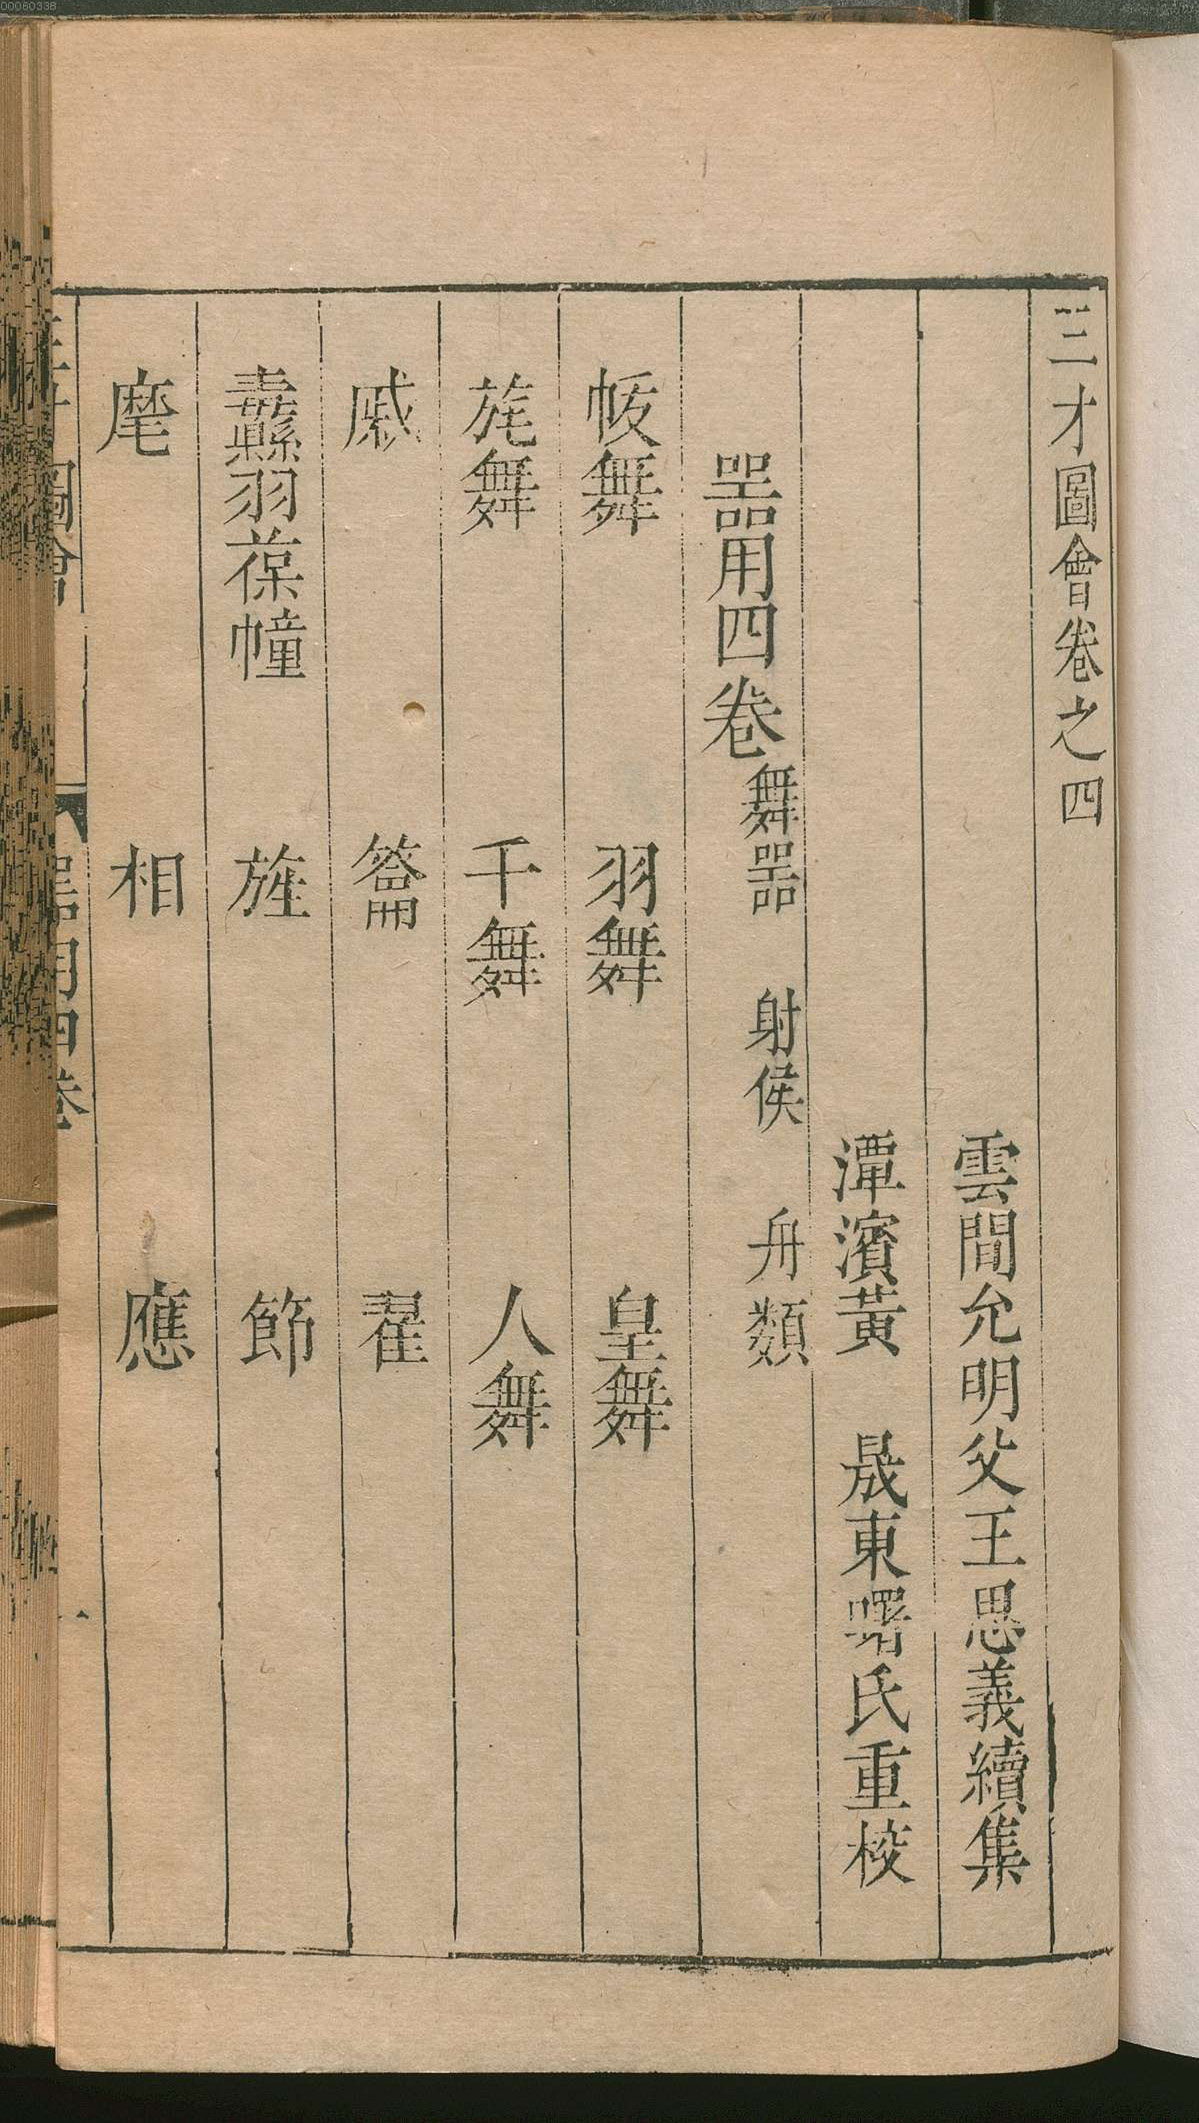 三才圖會卷之四
雲間允明父王思義續集
潭濱黃 晟東曙氏重校
噐用四卷 舞噐 射侯 舟類
帗舞 羽舞 皇舞
旄舞 干舞 人舞
戚 籥 翟
纛羽葆幢 旌 節
麾 相 應
圖會 噐用四卷
00080338